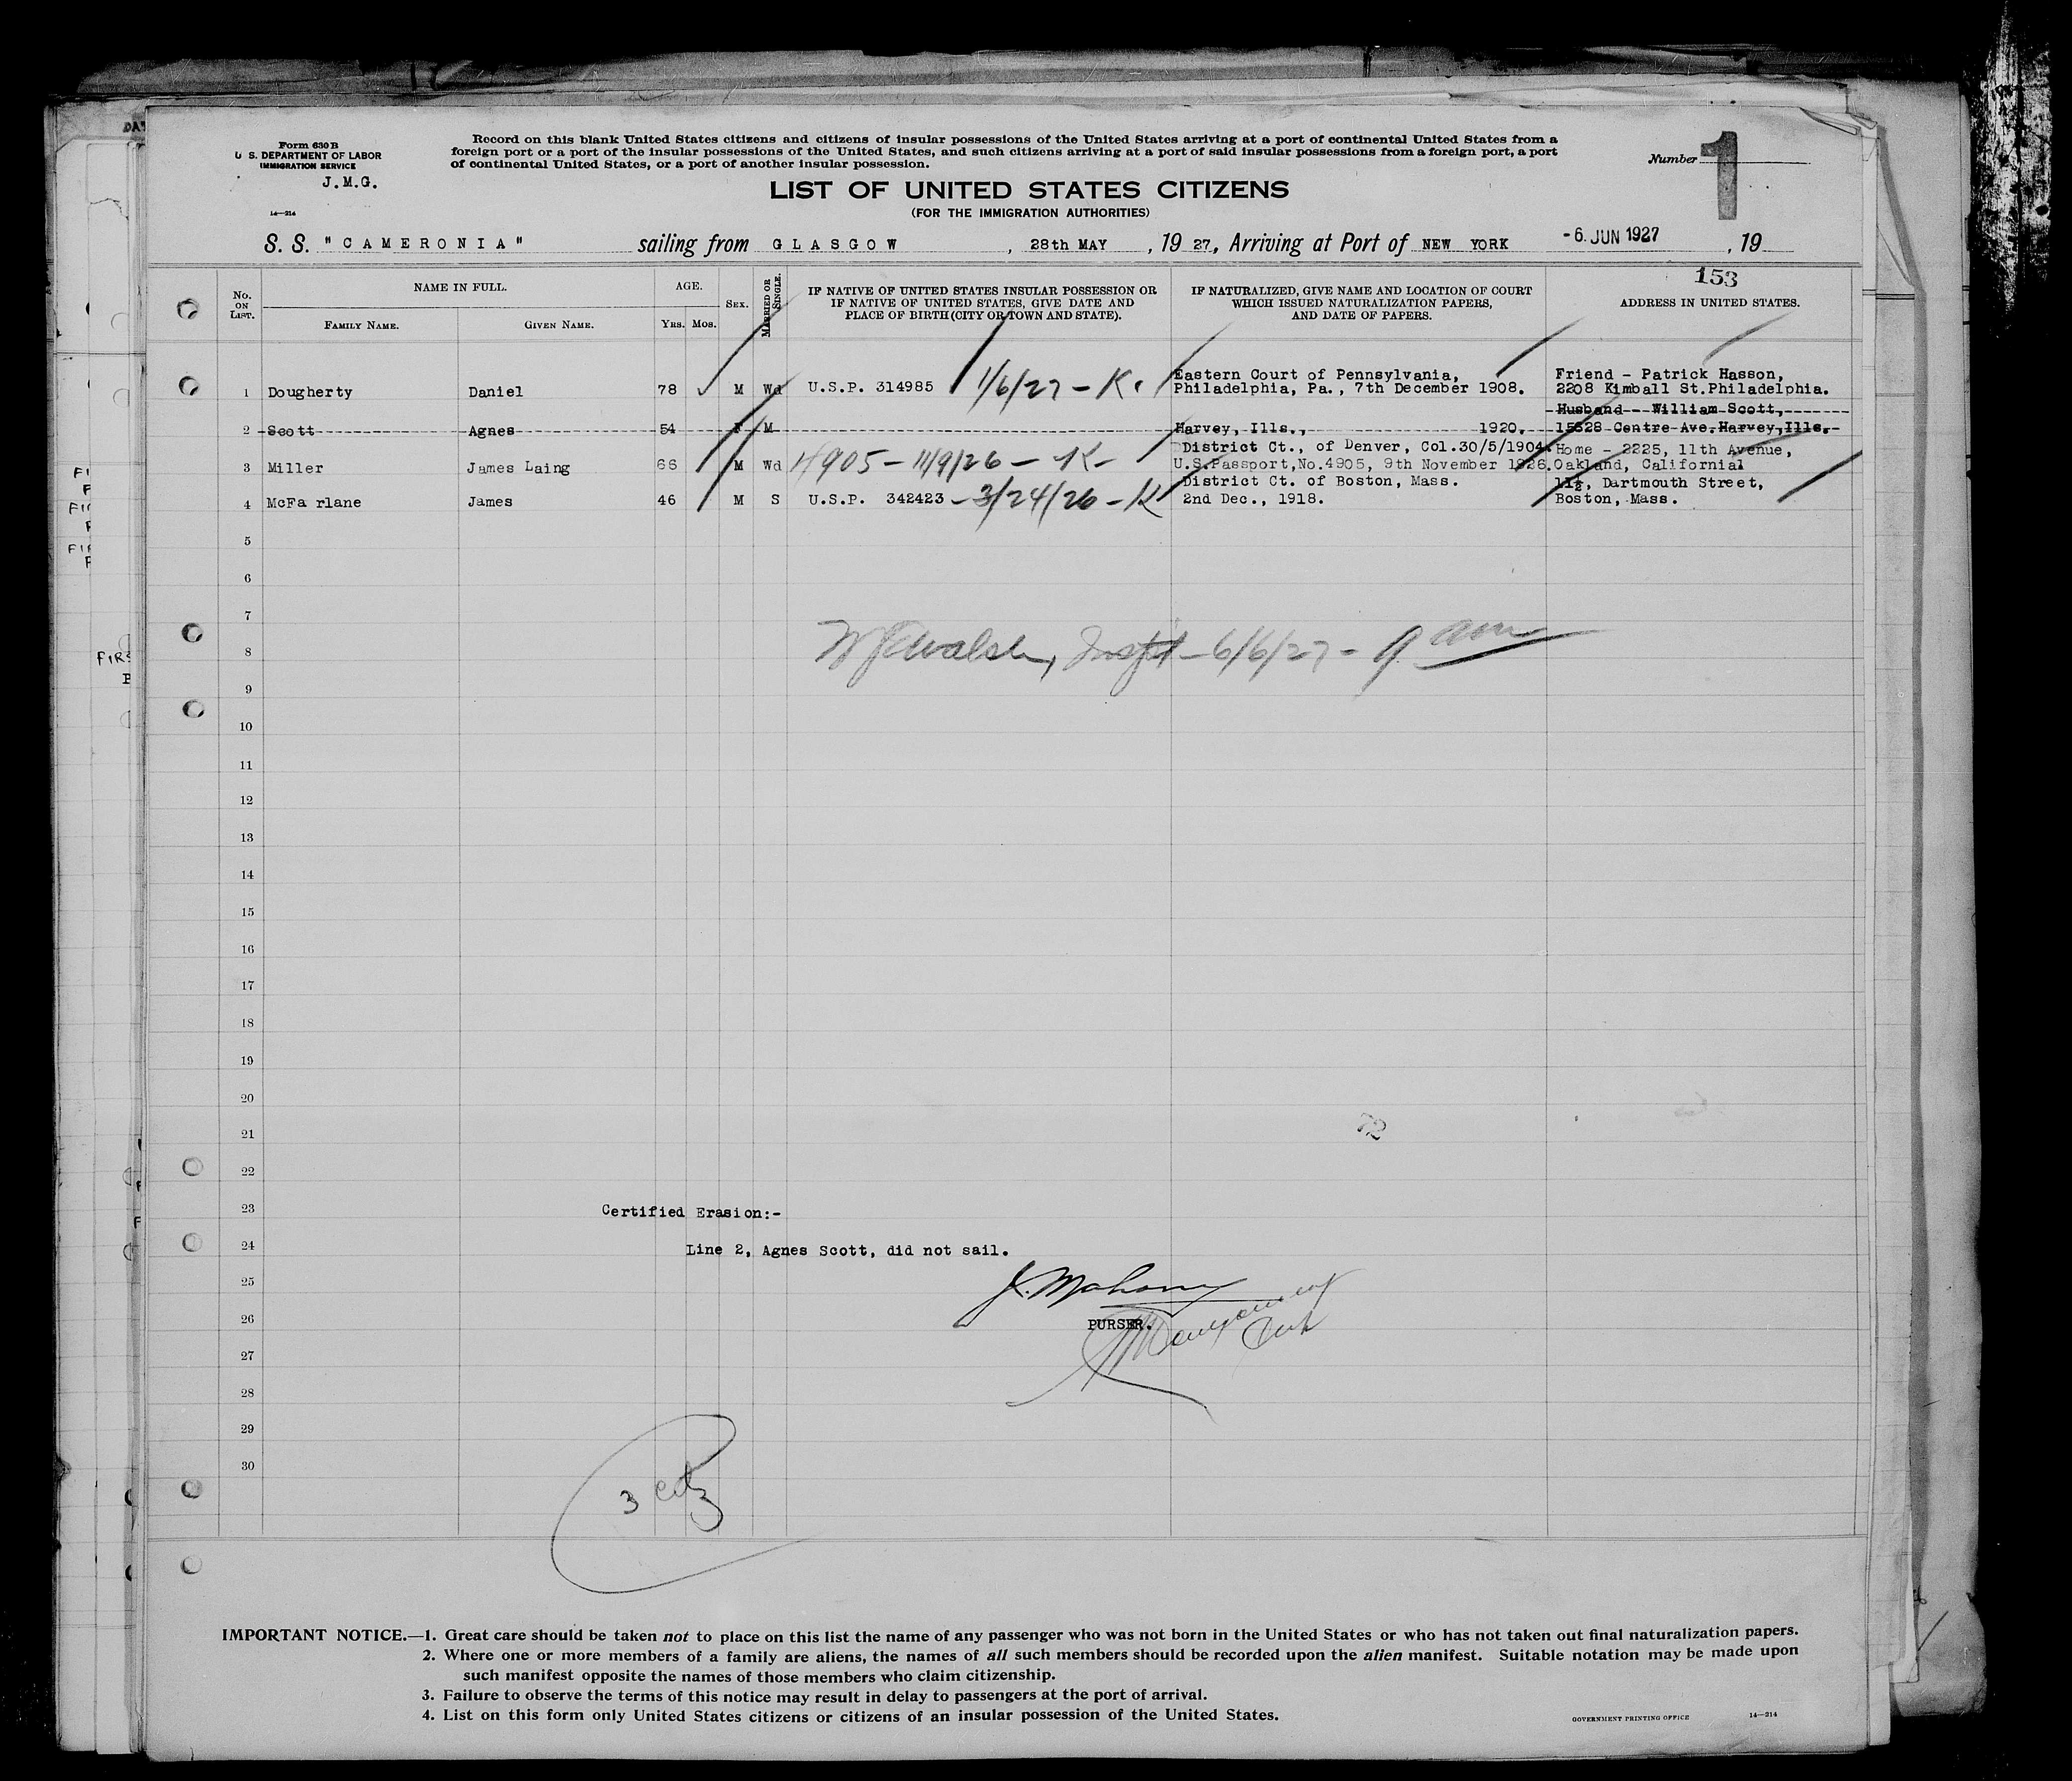 Form 630 B
U. S. DEPARTMENT OF LABOR
IMMIGRATION SERVICE
J.M.G.
14—214
Record on this blank United States citizens and citizens of insular possessions of the United States arriving at a port of continental United States from a
foreign port or a port of the insular possessions of the United States, and such citizens arriving at a port of said insular possessions from a foreign port, a port
of continental United States, or a port of another insular possession.
Number 1
LIST OF UNITED STATES CITIZENS
(FOR THE IMMIGRATION AUTHORITIES)
S. S. "CAMERONIA" sailing from GLASGOW, 28th MAY, 1927, Arriving at Port of NEW YORK -6. JUN 1927, 19
153
No. ON LIST.
NAME IN FULL.
FAMILY NAME.
GIVEN NAME.
AGE.
YRS. MOS.
SEX.
MARRIED OR SINGLE.
IF NATIVE OF UNITED STATES INSULAR POSSESSION OR
IF NATIVE OF UNITED STATES, GIVE DATE AND
PLACE OF BIRTH (CITY OR TOWN AND STATE).
IF NATURALIZED, GIVE NAME AND LOCATION OF COURT
WHICH ISSUED NATURALIZATION PAPERS,
AND DATE OF PAPERS.
ADDRESS IN UNITED STATES.
Eastern Court of Pennsylvania, Friend - Patrick Hasson,
1 Dougherty Daniel 78 M Wd U.S.P. 314985 1/6/27 - K. Philadelphia, Pa., 7th December 1908. 2208 Kimball St.Philadelphia.
Husband - William Scott,
2 Scott Agnes 54 F M Harvey, Ills., 1920. 15628 Centre Ave.Harvey,Ills.
District Ct., of Denver, Col.30/5/1904. Home - 2225, 11th Avenue,
3 Miller James Laing 66 M Wd 4905 - 11/9/26 - K - U.S.Passport,No.4905, 9th November 1926. Oakland, California
District Ct. of Boston, Mass. 11½, Dartmouth Street,
4 McFa rlane James 46 M S U.S.P. 342423 - 3/24/26 - K 2nd Dec., 1918. Boston, Mass.
5
6
7
8 Walsh, Inspt - 6/6/27 - 9 am
9
10
11
12
13
14
15
16
17
18
19
20
21
22
23 Certified Erasion:-
24 Line 2, Agnes Scott, did not sail.
25
26 PURSER.
27
28
29
30
3 citz
IMPORTANT NOTICE.—1. Great care should be taken not to place on this list the name of any passenger who was not born in the United States or who has not taken out final naturalization papers.
2. Where one or more members of a family are aliens, the names of all such members should be recorded upon the alien manifest. Suitable notation may be made upon
such manifest opposite the names of those members who claim citizenship.
3. Failure to observe the terms of this notice may result in delay to passengers at the port of arrival.
4. List on this form only United States citizens or citizens of an insular possession of the United States.
GOVERNMENT PRINTING OFFICE 14—214